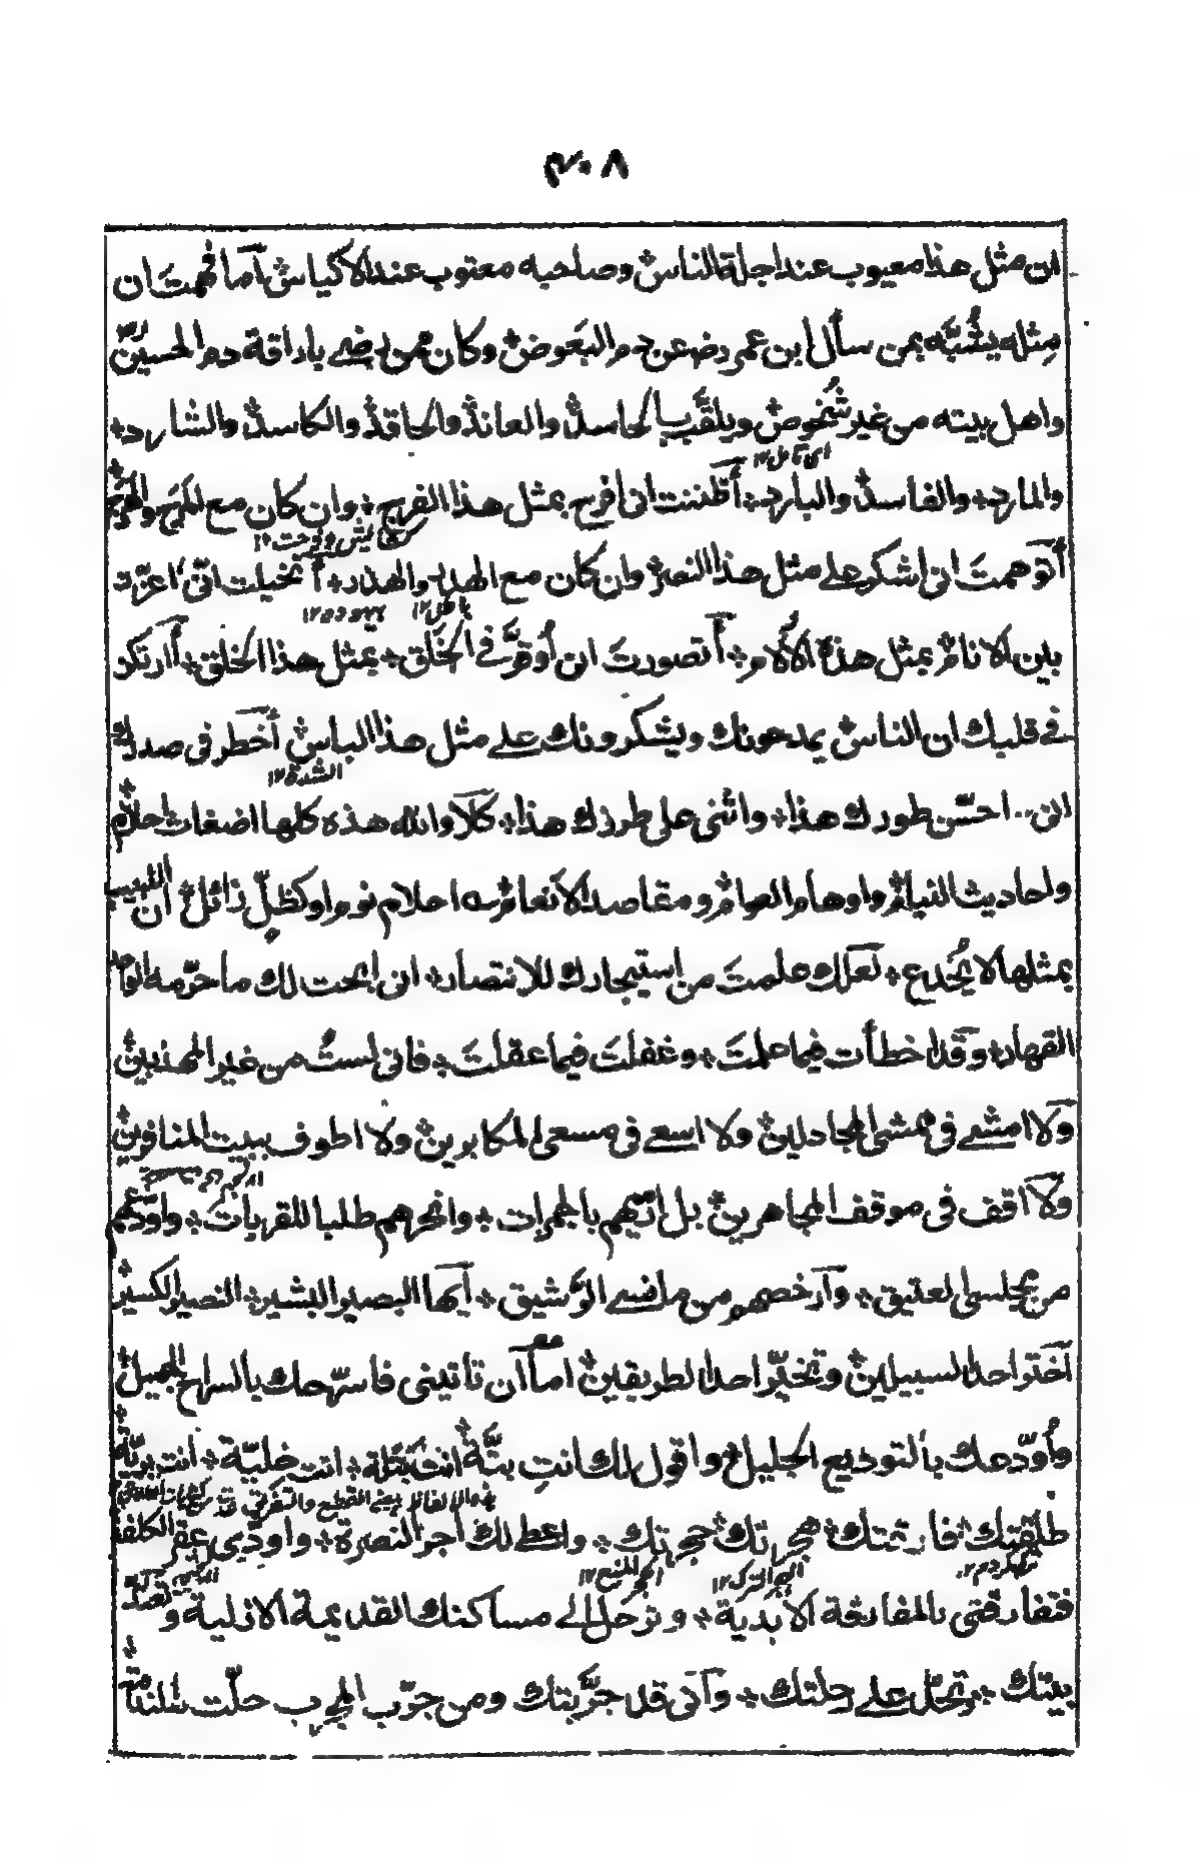 ٣٠٨
ان مثل هذا معيوب عند اجلة الناس وصاحبه معتوب عند الاكياس أما فهمت ان
مثله يشبَّه بمن سأل ابن عمر رض عن دم البعوض وكان ممن رضى باراقة دم الحسين
واهل بيته من غير شخوص ويلقَّب بالحاسد والعاند والحاقد والكاسد والشارد
والمارد والفاسد والبارد أظننت انى افرح بمثل هذا الفرح وان كان مع المرح
أتوهمت انى اشكر على مثل هذا النصر وان كان مع الهدر والهذر أتخيلت انّى اعزّز
بين الانام بمثل هذا أتصورت ان أوقَّر فى الخلق بمثل هذا الخلق أارتكز
فى قلبك ان الناس يمدحونك ويشكرونك على مثل هذا الباس أخطر فى صدرك
الشدة ١٢
انى احسّن طورك هذا واثنى على طرزك هذا كلا والله هذه كلها اضغاث احلام
واحاديث النيام واوهام العوام ومقاصد الانعام احلام نوم او كظلّ زائل ان اللبيب
بمثلها لا يُخدع لعلك علمتَ من استيجارك للانتصار انى ابحت لك ما حرّمه الواحد
القهار وقد اخطأت فيما علمتَ وغفلتَ فيما عقلتَ فانى لستُ من غير المهذبين
ولا امشى فى ممشى المجادلين ولا اسعى فى مسعى المكابرين ولا اطوف ببيت المنافرين
ولا اقف فى موقف المجاهرين بل ارميهم بالجمرات وانحرهم طلبا للقربات واودّعهم
من مجلسى العتيق وآرخصهم من الرشيق أيها البصير البشير النصير الكسير
آختر احد السبيلين وتخيّر احد الطريقين اما أن تاتينى فاسرّحك بالسراح الجميل
وأودّعك بالتوديع الجليل واقول لك انتِ بتّة انتِ بَتْلة انت خليّة انت بريّة
طلقتك فارقتك هجرتك حجرتك واعطى لك اجر النصرة واودّى عقر الكلفة
فتفارقنى بالمفارقة الابدية وترحل الى مساكنك القديمة الازلية و تعتد
بيتك وتحلّ على رحلتك وآنى قد جرّبتك ومن جرّب المجرب حلّت به الندامة